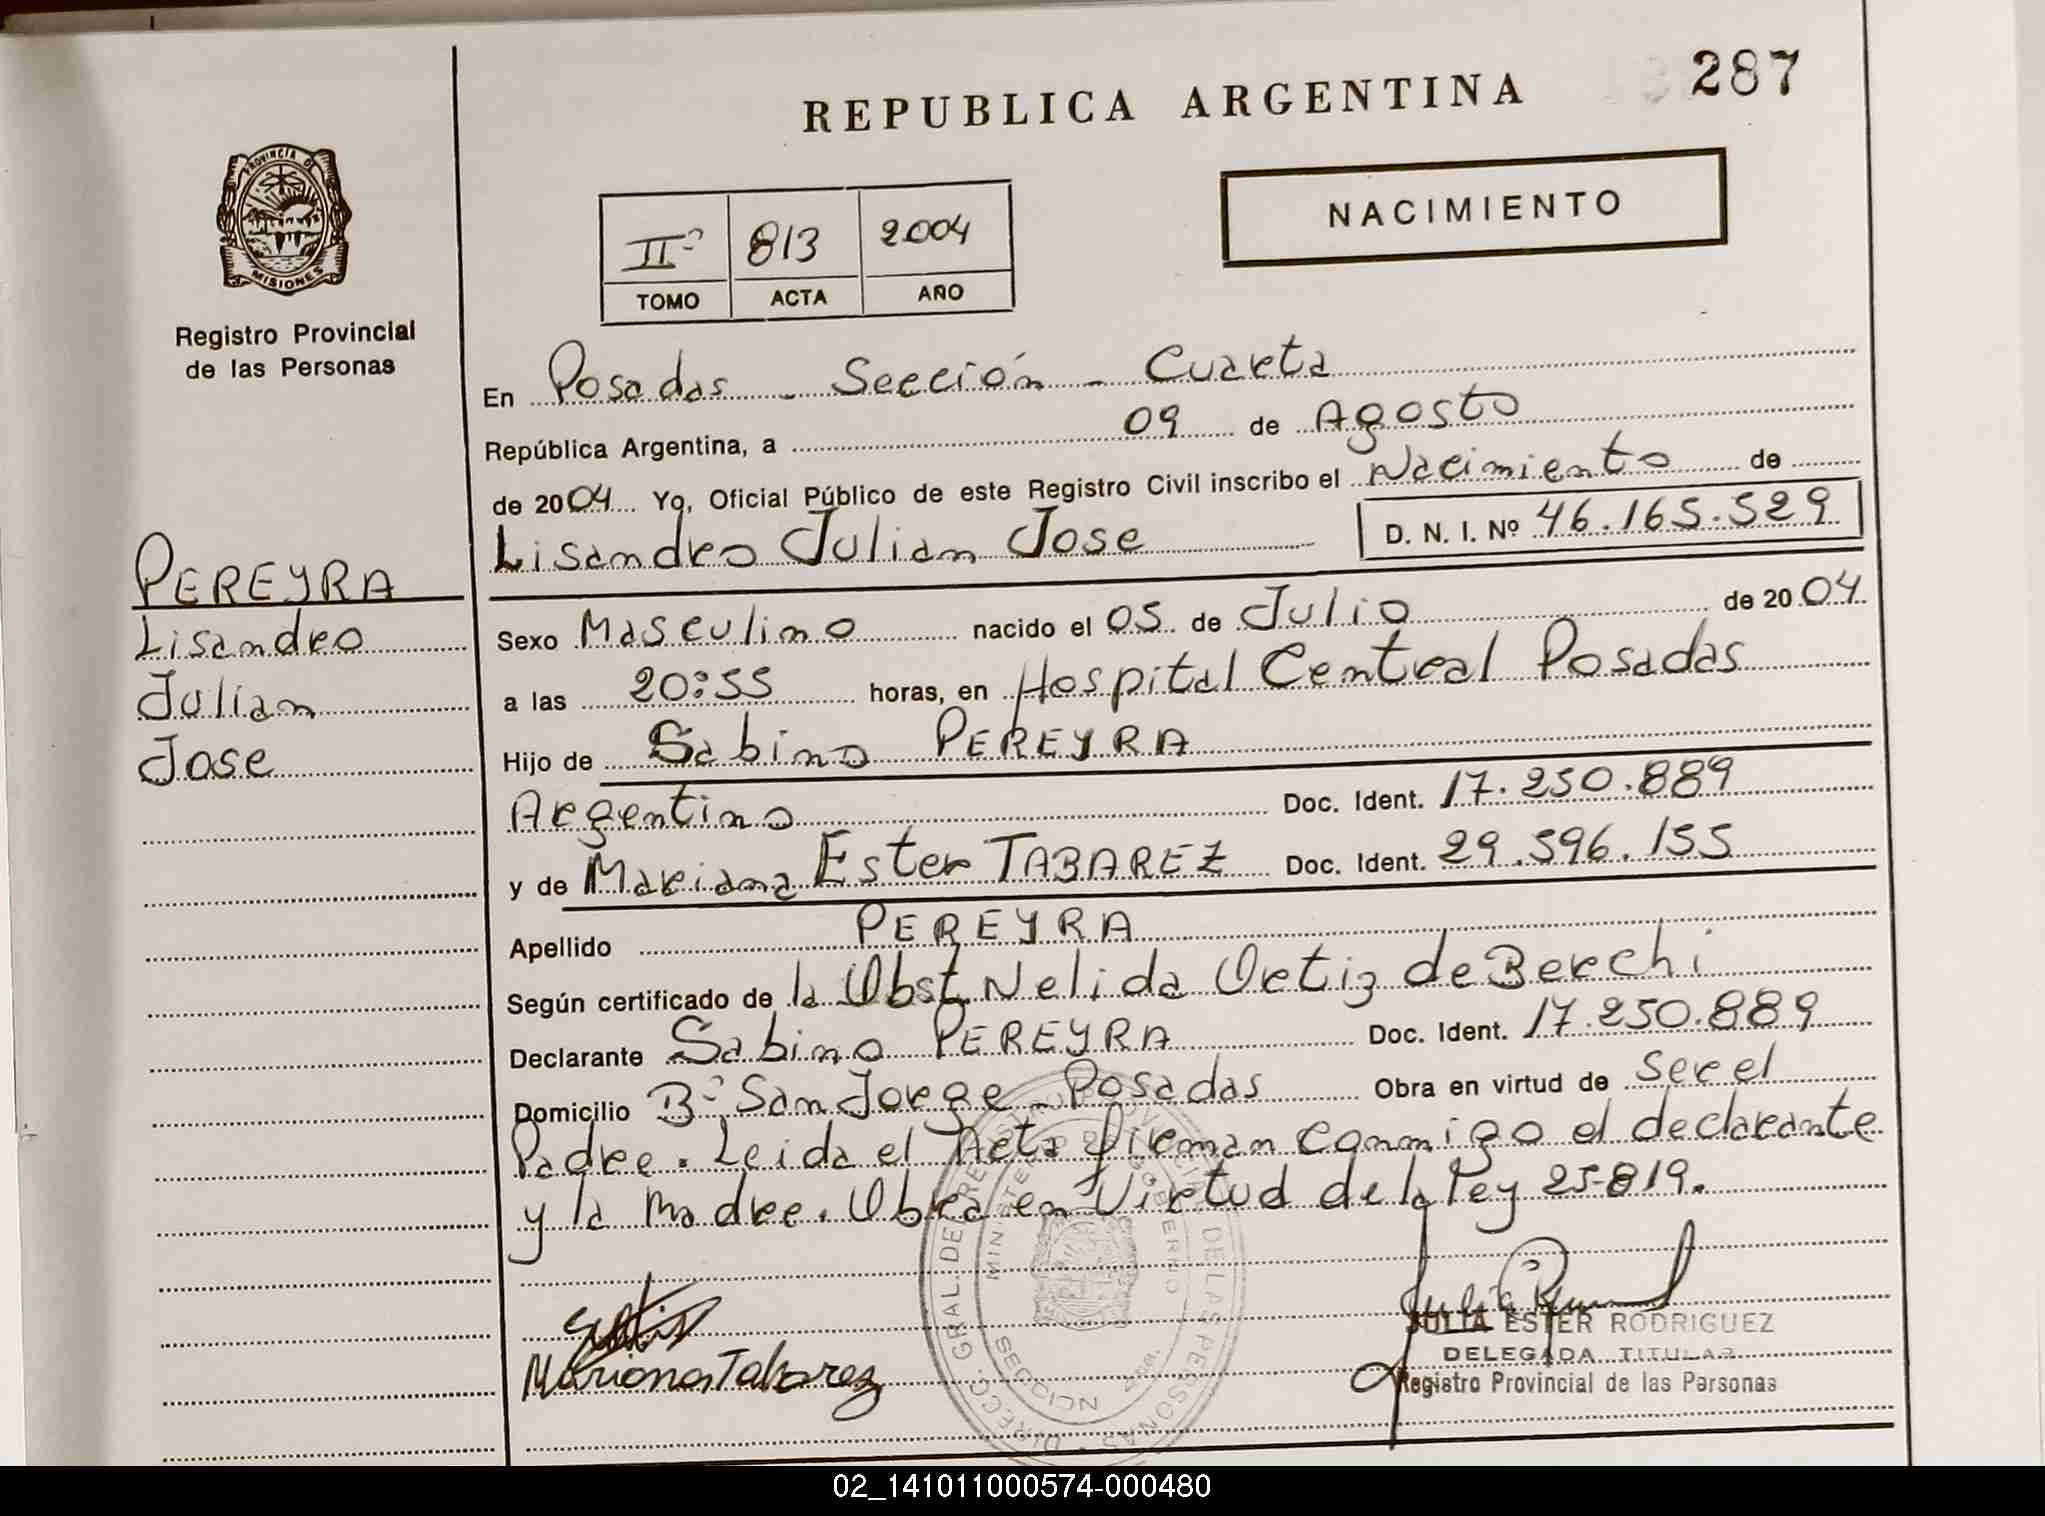 287
REPUBLICA ARGENTINA
NACIMIENTO
PROVINCIA DE
MISIONES
Registro Provincial
de las Personas
IIº 813 2004
TOMO ACTA AÑO
En Posadas - Sección - Cuarta
República Argentina, a 09 de Agosto
de 2004 Yo, Oficial Público de este Registro Civil inscribo el Nacimiento de
Lisandro Julian Jose D. N. I. Nº 46.165.529
PEREYRA
Lisandro
Julian
Jose
Sexo Masculino nacido el 05 de Julio de 2004
a las 20:55 horas, en Hospital Central Posadas
Hijo de Sabino PEREYRA
Argentino Doc. Ident. 17.250.889
y de Mariana Ester TABAREZ Doc. Ident. 29.596.155
Apellido PEREYRA
Según certificado de la Obst. Nelida Ortiz de Berchi
Declarante Sabino PEREYRA Doc. Ident. 17.250.889
Domicilio Bº San Jorge - Posadas Obra en virtud de ser el
Padre. Leida el Acta firman conmigo el declarante
y la madre. Obra en Virtud de la Ley 25-819.
DIRECC. GRAL. DE REGISTRO PROVINCIAL DE LAS PERSONAS
MINISTERIO DE GOBIERNO
SECCION
Mariana Tabarez
JULIA ESTER RODRIGUEZ
DELEGADA TITULAR
Registro Provincial de las Personas
02_141011000574-000480